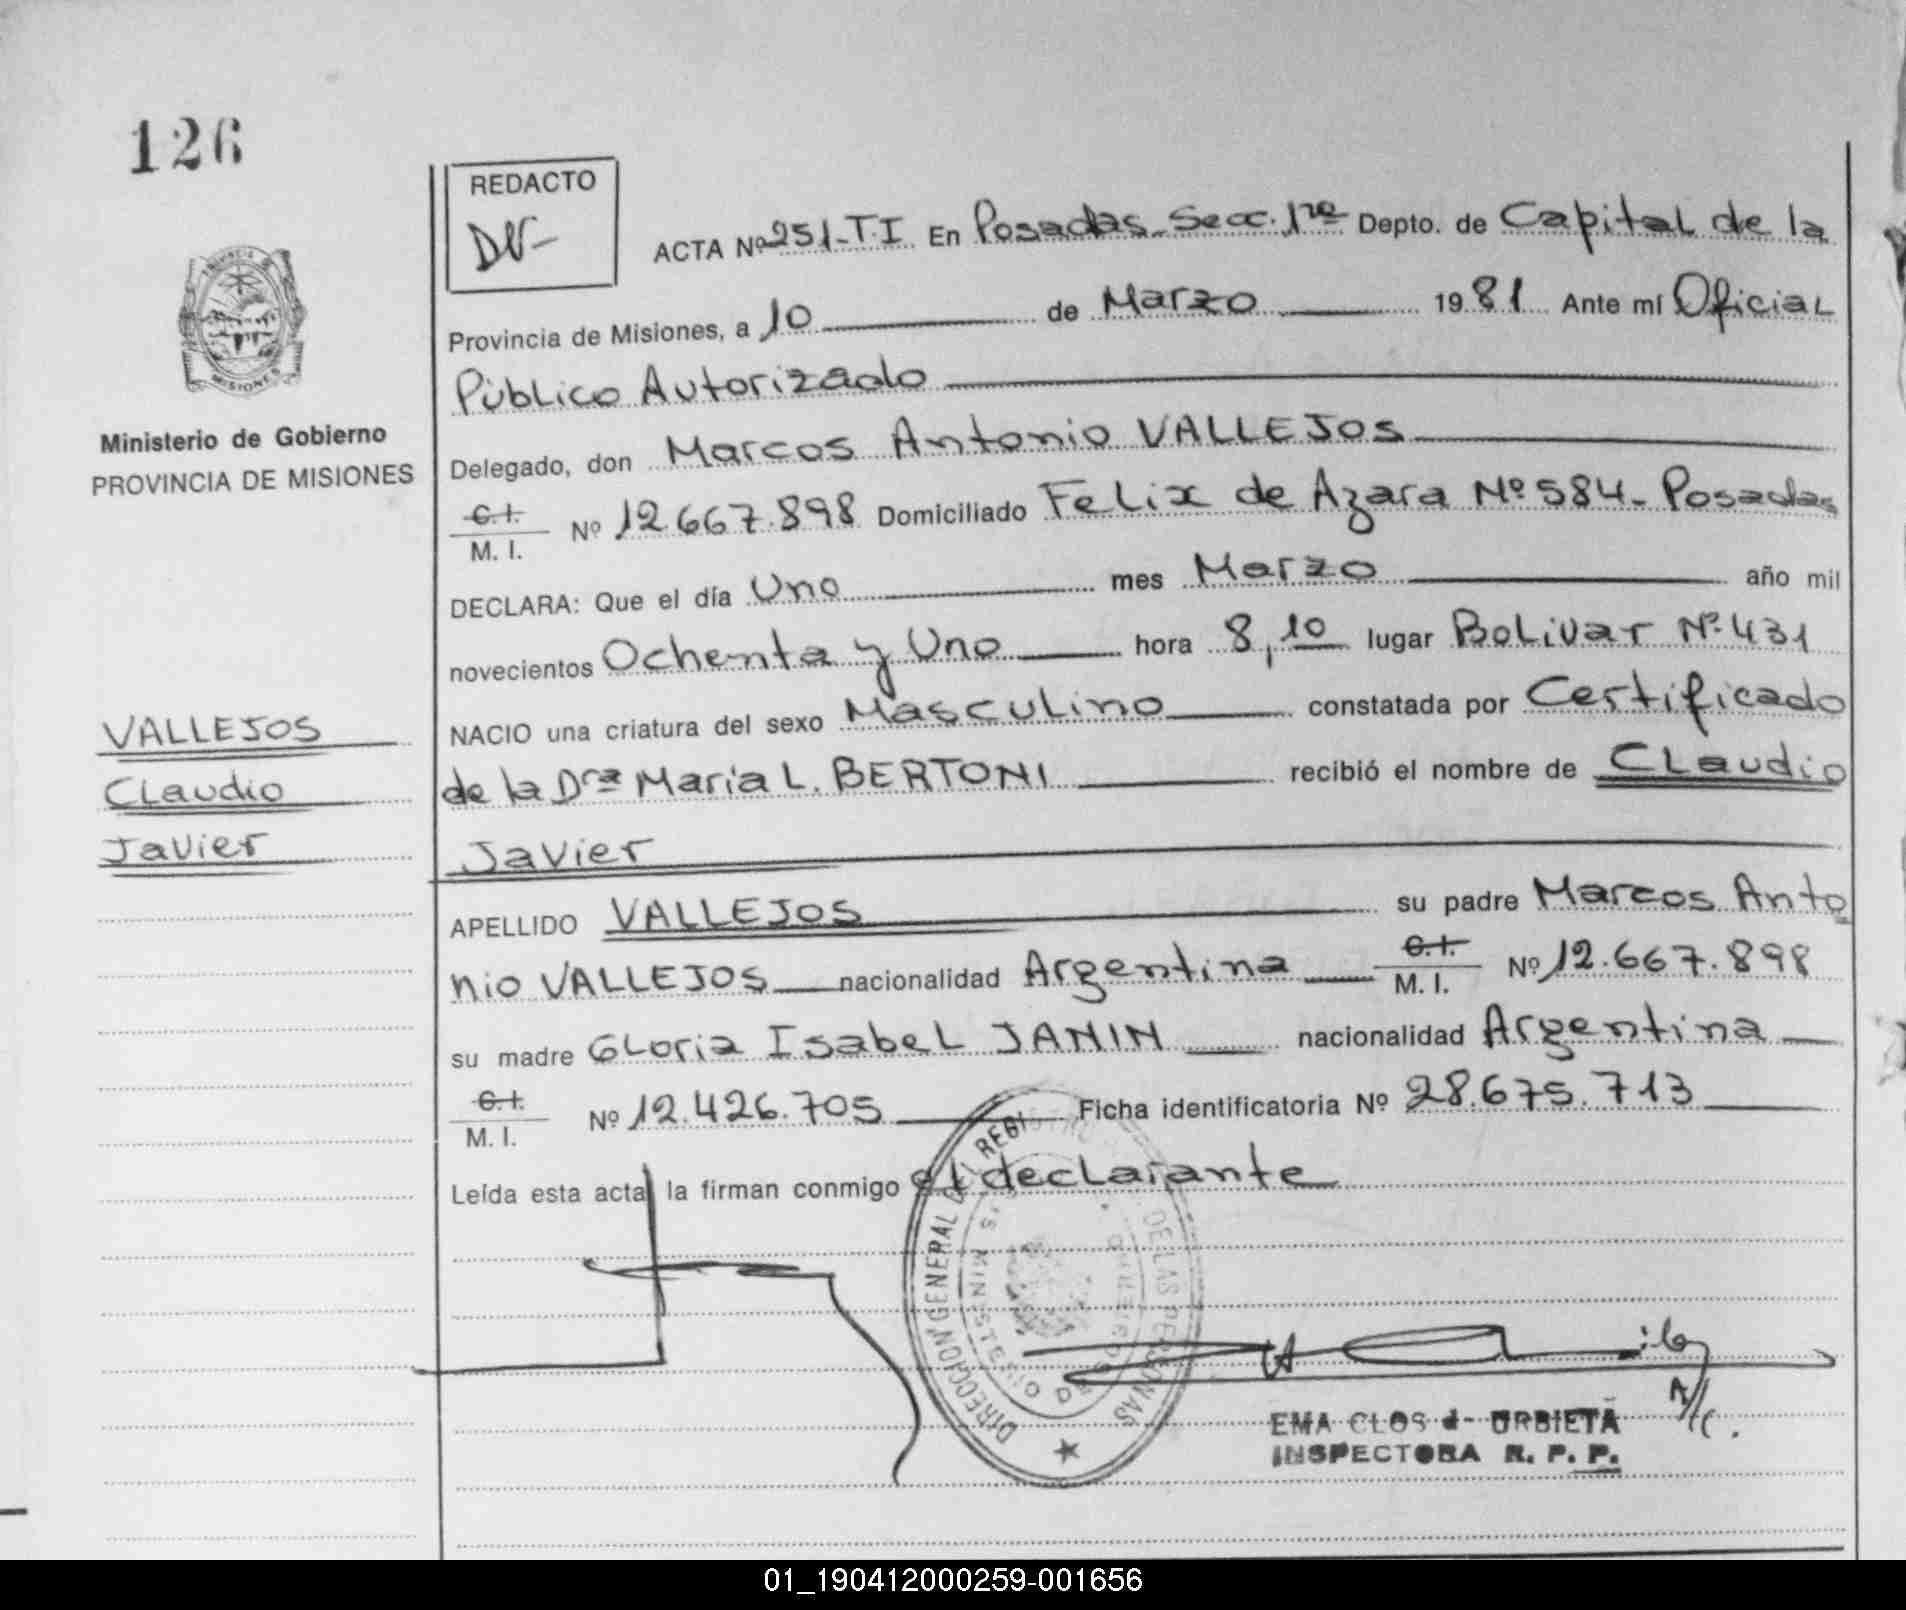 126
REDACTO
DV-
ACTA Nº 251-T.I. En Posadas Secc. 1ra Depto. de Capital de la
Provincia de Misiones, a 10 de Marzo 1981 Ante mí Oficial
Público Autorizado
Ministerio de Gobierno
PROVINCIA DE MISIONES
Delegado, don Marcos Antonio VALLEJOS
C.I.
M. I. Nº 12.667.898 Domiciliado Felix de Azara Nº 584- Posadas
DECLARA: Que el día Uno mes Marzo año mil
novecientos Ochenta y Uno hora 8,10 lugar Bolivar Nº 431
NACIO una criatura del sexo Masculino constatada por Certificado
de la Dra María L. BERTONI recibió el nombre de Claudio
Javier
VALLEJOS
Claudio
Javier
APELLIDO VALLEJOS su padre Marcos Anto
nio VALLEJOS nacionalidad Argentina C.I. M. I. Nº 12.667.898
su madre Gloria Isabel JANIN nacionalidad Argentina
C.I.
M. I. Nº 12.426.705 Ficha identificatoria Nº 28.675.713
Leída esta acta la firman conmigo el declarante
DIRECCION GENERAL DEL REGISTRO DE LAS PERSONAS
MINISTERIO DE GOBIERNO
EMA CLOS d- URBIETA
INSPECTORA R. P. P.
MISIONES
01_190412000259-001656